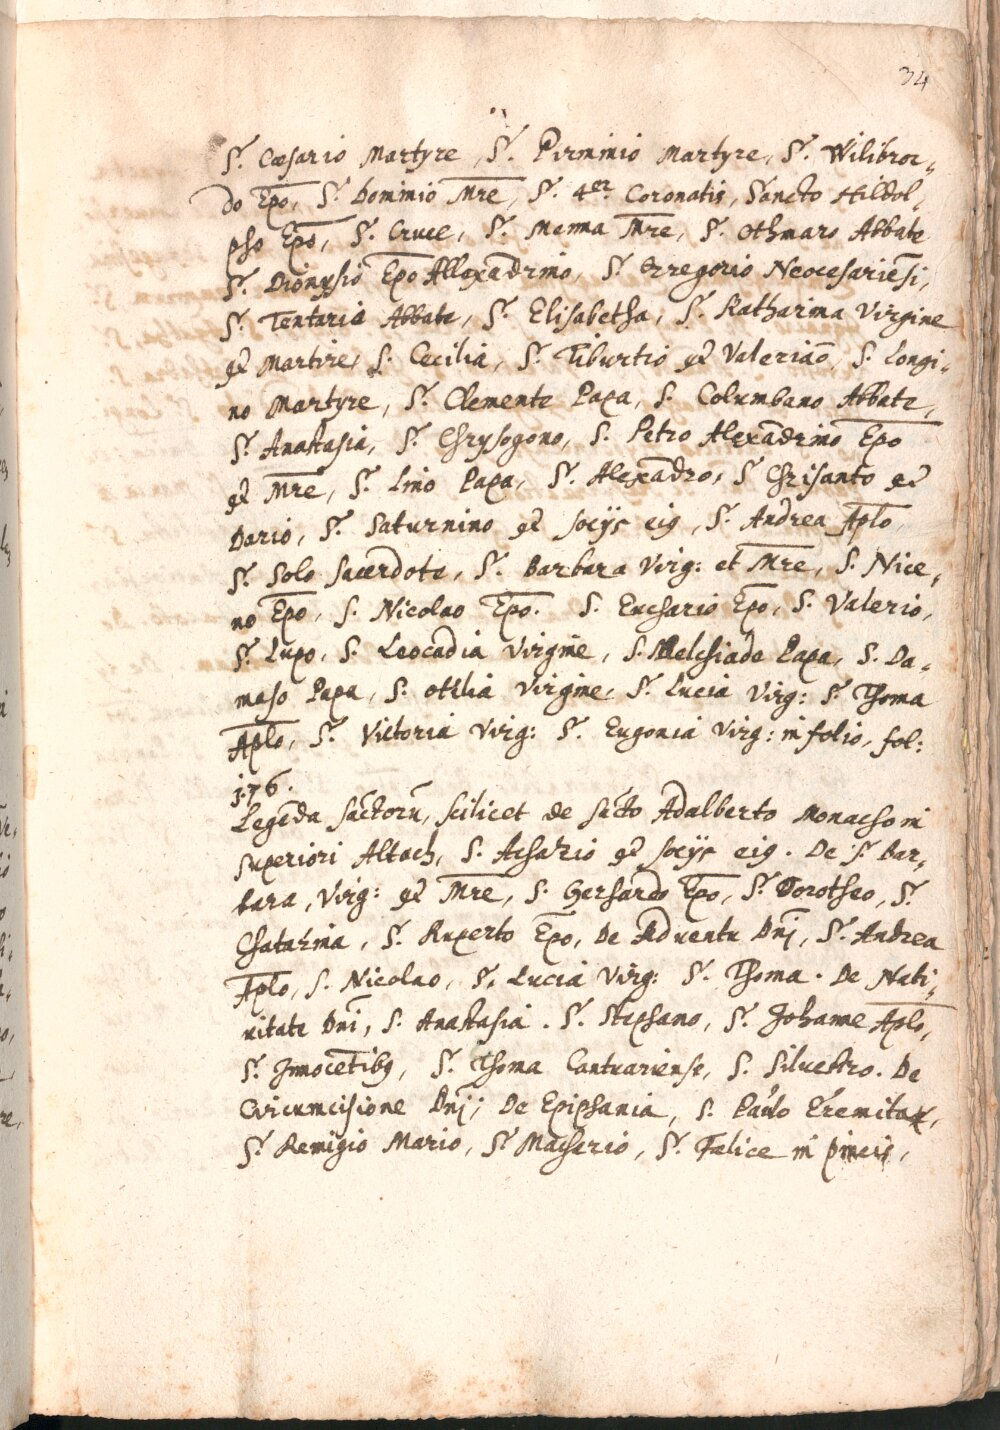 34
S. Cæsario Martyre, S. Pirminio Martyre, S. Wilibror-
do Epō, S. Dominio Mr̄e, S. 4er. Coronatis, Sancto Hildol-
pho Epō, S. Cruce, S. Menna Mr̄e, S. Othmaro Abbate
S. Dionysio Epō Allexādrino, S. Gregorio Neocesariēsi,
S. Tentario Abbate, S. Elisabetha, S. Katharina Virgine
et Martire, S. Cecilia, S. Tiburtio et Valeriāo, S. Longi-
no Martyre, S. Clemente Papa, S. Columbano Abbate,
S. Anastasia, S. Chrysogono, S. Petro Alexādrino Epō
et Mr̄e, S. Lino Papa, S. Alexādro, S Chrisanto et
Dario, S. Saturnino et socijs eiꝰ, S. Andrea Apl̄o,
S. Solo Sacerdote, S. Barbara Virg: et Mr̄e, S. Nice-
no Epō, S. Nicolao Epō. S. Euchario Epō, S. Valerio,
S. Lupo, S. Leocadia Virgine, S. Melchiade Papa, S. Da-
maso Papa, S. Otilia Virgine, S. Lucia Virg: S. Thoma
Apl̄o, S. Victoria Virg: S. Eugonia Virg: in folio, fol:
176.
Legēda sāctorū, scilicet de sācto Adalberto Monacho in
superiori Altach, S. Achatio et socijs eiꝰ. De S. Bar-
bara, Virg: et Mr̄e, S. Gerhardo Epō, S. Dorotheo, S.
Chatarina, S. Ruperto Epō, De Adventu Dn̄j, S. Andrea
Apl̄o, S. Nicolao, S, Lucia Virg: S. Thoma. De Nati-
vitate Dn̄i, S. Anastasia. S. Stephano, S. Johanne Apl̄o,
S. Jnnocētibꝰ, S. Thoma Cantuariense, S. Silvestro. De
Circumcisione Dn̄j; De Epiphania, S. Paulo Eremita,
S. Remigio Mario, S. Machario, S. Fælice in pineis,